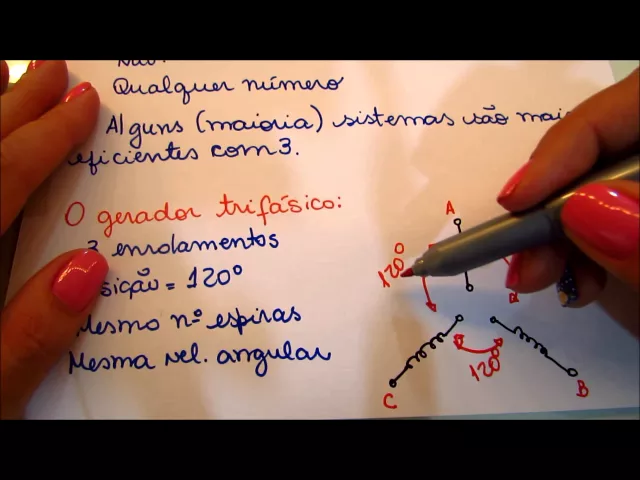 Qualquer número
Alguns (maioria) sistemas são mais
eficientes com 3.
O gerador trifásico:
3 enrolamentos
= 120º
Mesmo nº espiras
Mesma vel. angular
A
120º
120º
C
B